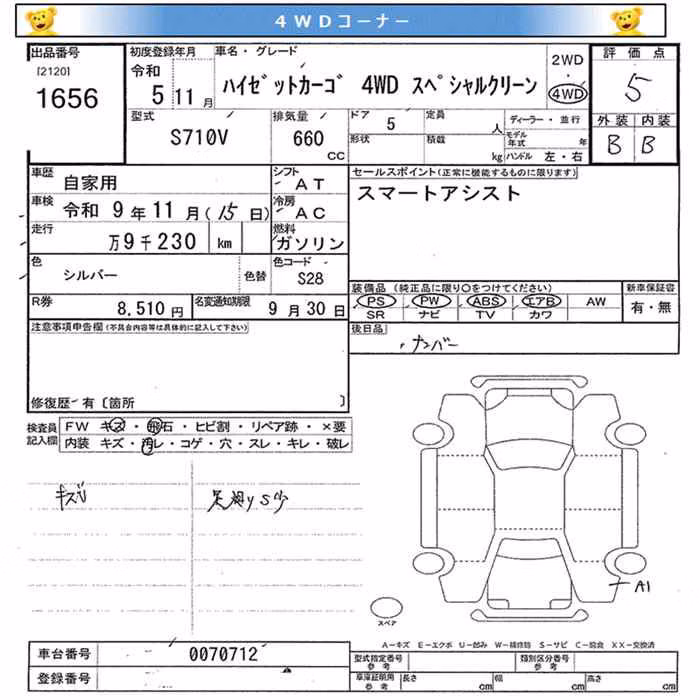 4WDコーナー
出品番号
[2120]
1656
初度登録年月
令和
5 11月
車名・グレード
ハイゼットカーゴ 4WD スペシャルクリーン
2WD
・
4WD
評価点
5
外装 内装
B B
型式
S710V
排気量
660
CC
ドア
5
定員
人
形状
積載
kg
ディーラー・並行
モデル年式
年
ハンドル 左・右
車歴
自家用
シフト
AT
車検
令和 9年11月(15日)
冷房
AC
走行
万9千230 km
燃料
ガソリン
色
シルバー
色替
色コード
S28
R券
8,510円
名変通知期限
9月30日
セールスポイント(正常に機能するものに限ります)
スマートアシスト
装備品(純正品に限り○をつけてください)
PS PW ABS エアB AW
SR ナビ TV カワ
新車保証書
有・無
後日品
ナンバー
注意事項申告欄(不具合内容等は具体的に記入して下さい)
修復歴・有〔箇所 〕
検査員記入欄
FW キズ・飛石・ヒビ割・リペア跡・×要
内装 キズ・汚レ・コゲ・穴・スレ・キレ・破レ
キズ
A1
スペア
A-キズ E-エクボ U-凹み W-補修跡 S-サビ C-腐食 XX-交換済
車台番号
0070712
登録番号
型式指定番号
参考
類別区分番号
参考
車庫証明用
参考
長さ cm 幅 cm 高さ cm